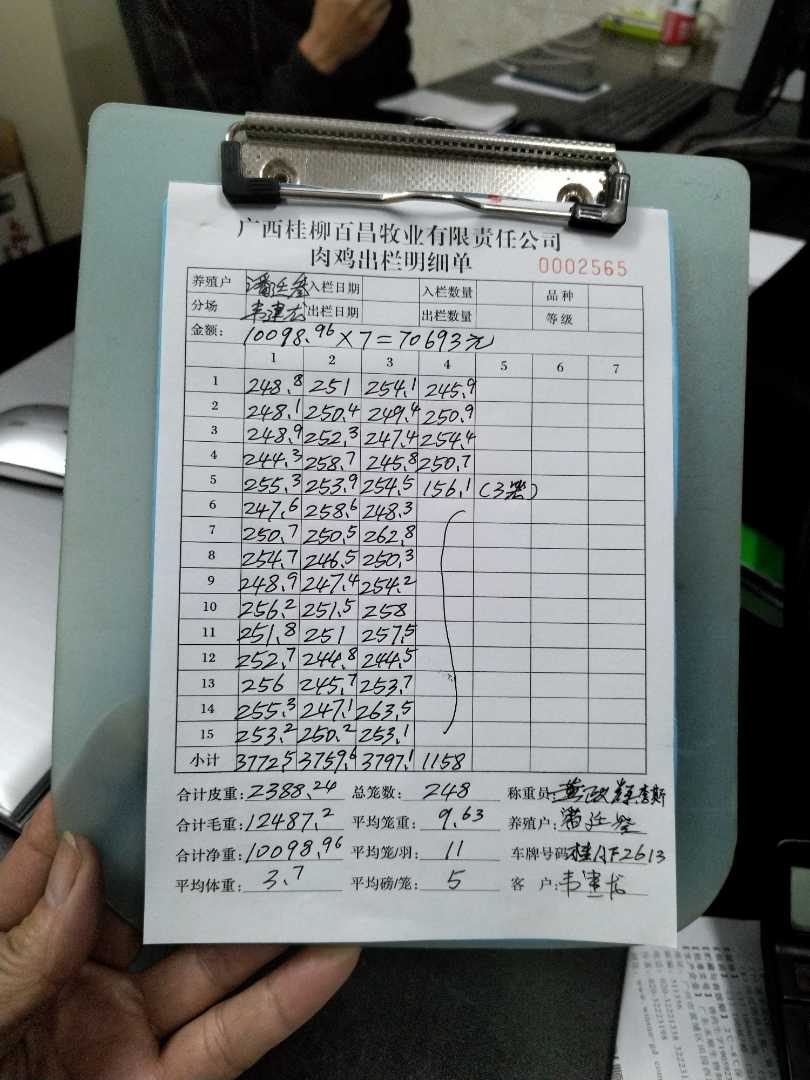 广西桂柳百昌牧业有限责任公司
肉鸡出栏明细单 0002565
养殖户 潘廷登 入栏日期 入栏数量 品种
分场 韦建龙 出栏日期 出栏数量 等级
金额: 10098.96×7=70693元
1 2 3 4 5 6 7
1 248.8 251 254.1 245.9
2 248.1 250.4 249.4 250.9
3 248.9 252.3 247.4 254.4
4 244.3 258.7 245.8 250.7
5 255.3 253.9 254.5 156.1 (3笼)
6 247.6 258.6 248.3
7 250.7 250.5 262.8
8 254.7 246.5 250.3
9 248.9 247.4 254.2
10 256.2 251.5 258
11 251.8 251 257.5
12 252.7 244.8 244.5
13 256 245.7 253.7
14 255.3 247.1 263.5
15 253.2 250.2 253.1
小计 3772.5 3759.6 3797.1 1158
合计皮重: 2388.24 总笼数: 248 称重员
合计毛重: 12487.2 平均笼重: 9.63 养殖户: 潘廷登
合计净重: 10098.96 平均笼/羽: 11 车牌号码
平均体重: 3.7 平均磅/笼: 5 客户: 韦建龙